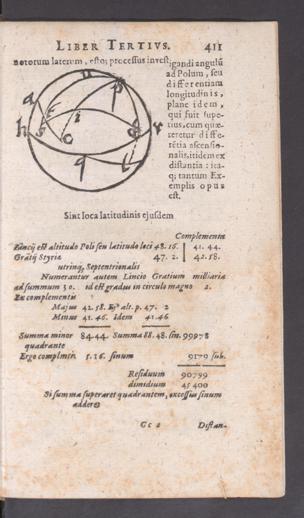 LIBER TERTIVS. 411
notorum laterum, esto; processus investi-
gandi angulũ
ad Polum, seu
differentiam
longitudinis,
plane idem,
qui fuit supe-
rius, cum quæ-
reretur diffe-
rẽtia ascensio-
nalis, itidem ex
distantia: ita-
q; tantum Ex-
emplis opus
est.
Sint loca latitudinis ejusdem
Complementa
Lincij est altitudo Poli seu latitudo loci 48. 16. 41. 44.
Gratij Styriæ 47. 2. 42. 58.
utrinq, Septentrionalis
Numerantur autem Lincio Gratium milliaria
ad summum 30. id est gradus in circulo magno 2.
Ex complementis
Majus 42. 58. Ejus alt. p. 47. 2
Minus 41. 46. Idem 41. 46
Summa minor 84. 44. Summa 88. 48. sin. 99978
quadrante
Ergo complmin. 5. 16. sinum 9179 sub.
Residuum 90799
dimidium 45400
Si summa superaret quadrantem, excessus sinum
addere
Cc 2 Distan-